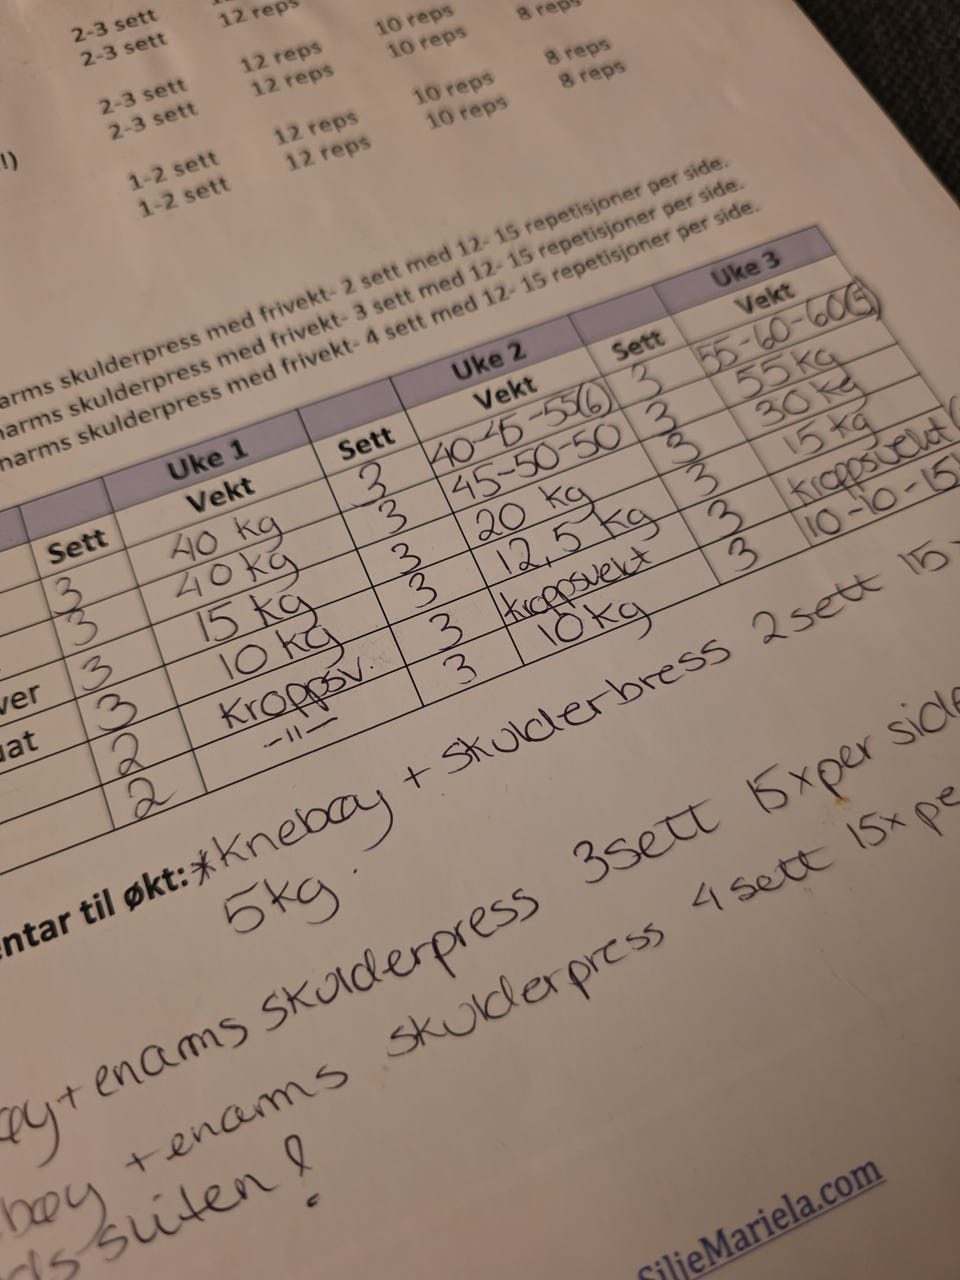 2-3 sett 12 reps
2-3 sett 10 reps 8 reps
2-3 sett 12 reps 10 reps
2-3 sett 12 reps 8 reps
10 reps 8 reps
1-2 sett 12 reps 10 reps
1-2 sett 12 reps
arms skulderpress med frivekt- 2 sett med 12- 15 repetisjoner per side.
narms skulderpress med frivekt- 3 sett med 12- 15 repetisjoner per side.
narms skulderpress med frivekt- 4 sett med 12- 15 repetisjoner per side.
Uke 1 Uke 2 Uke 3
Sett Vekt Sett Vekt Sett Vekt
3 40 kg 3 40-45-55(6) 3 55-60-60(5)
3 40 kg 3 45-50-50 3 55 kg
3 15 kg 3 20 kg 3 30 kg
ver 3 10 kg 3 12,5 kg 3 15 kg
uat 2 Kroppsv. 3 kroppsvekt 3 kroppsvekt
2 -11- 3 10 kg 3 10-10-15
entar til økt: *Knebøy + skulderbress 2 sett 15
5 kg.
øy + enarms skulderpress 3 sett 15x per side
bøy + enarms skulderpress 4 sett 15x pe
ds-suiten!
SiljeMariela.com